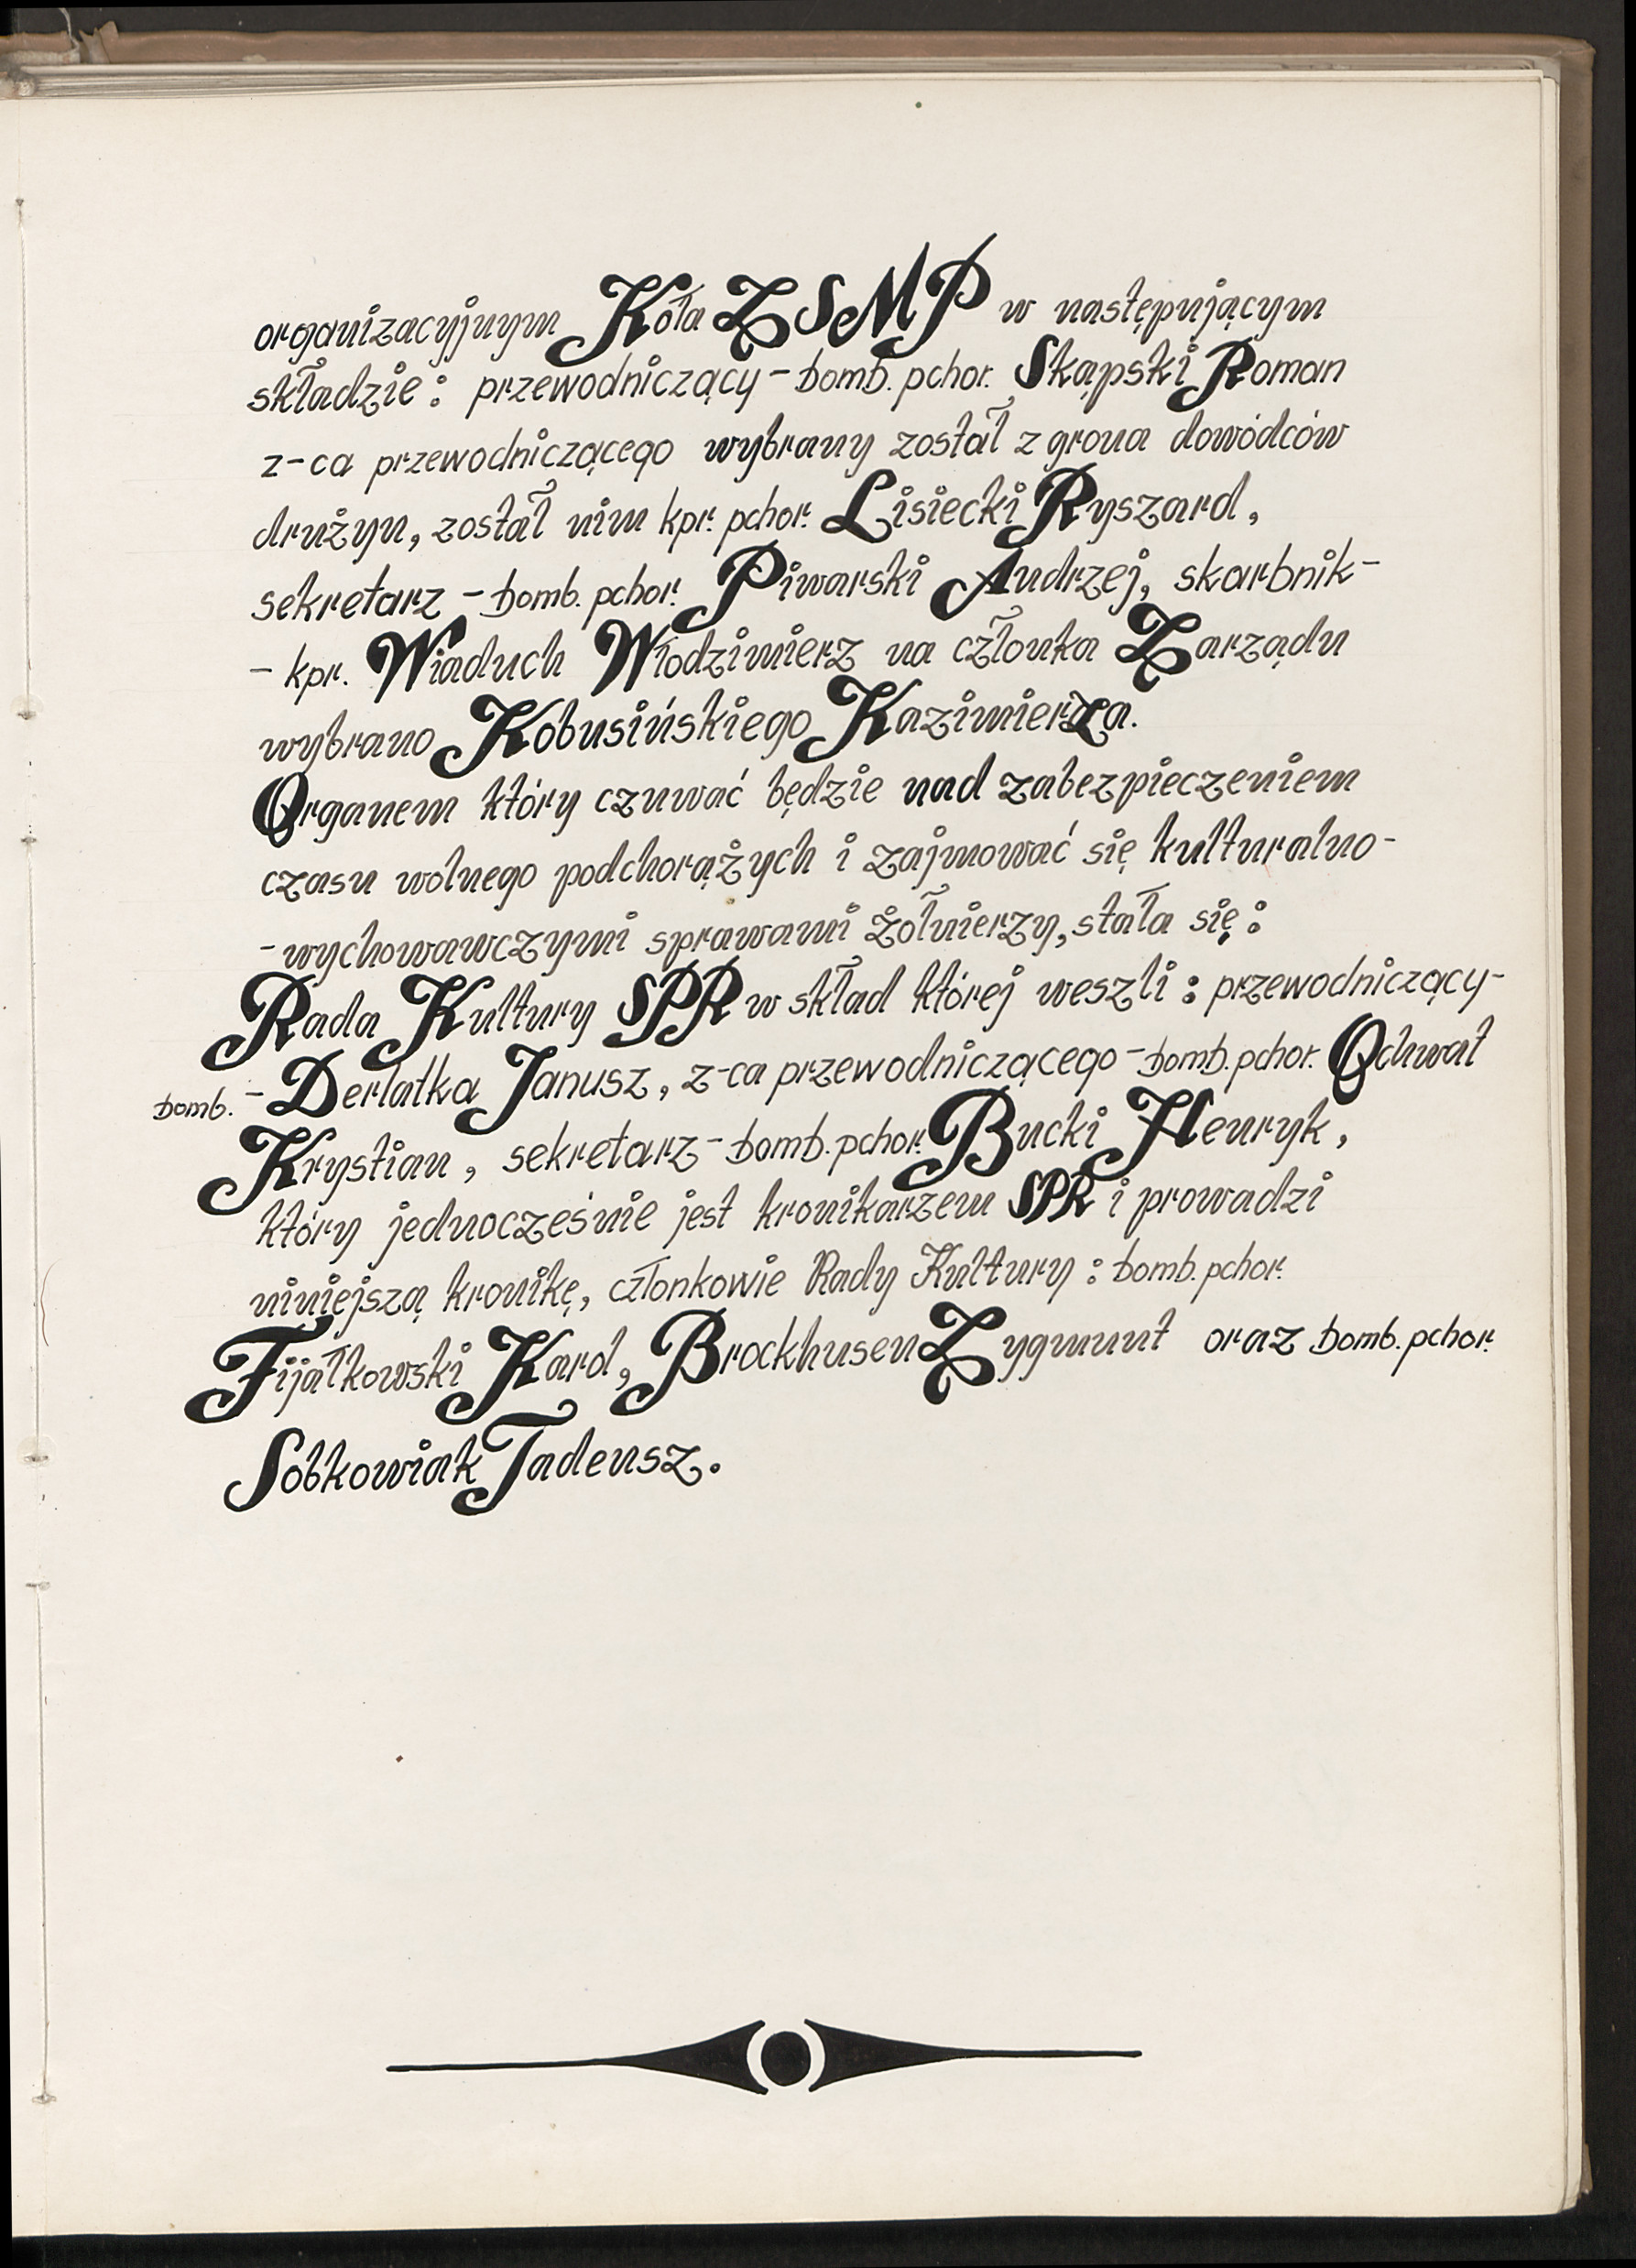 organizacyjnym Koła ZSMP w następującym
składzie: przewodniczący - bomb. pchor. Skąpski Roman
z-ca przewodniczącego wybrany został z grona dowódców
drużyn, został nim kpr. pchor. Lisiecki Ryszard,
sekretarz - bomb. pchor. Piwarski Andrzej, skarbnik-
- kpr. Wiaduch Włodzimierz na członka Zarządu
wybrano Kobusińskiego Kazimierza.
Organem który czuwać będzie nad zabezpieczeniem
czasu wolnego podchorążych i zajmować się kulturalno-
-wychowawczymi sprawami żołnierzy, stała się:
Rada Kultury SPR w skład której weszli: przewodniczący-
bomb. - Derlatka Janusz, z-ca przewodniczącego - bomb. pchor. Ochwat
Krystian, sekretarz - bomb. pchor. Bucki Henryk,
który jednocześnie jest kronikarzem SPR i prowadzi
niniejszą kronikę, członkowie Rady Kultury: bomb. pchor.
Fijałkowski Karol, Brockhusen Zygmunt oraz bomb. pchor.
Sobkowiak Tadeusz.